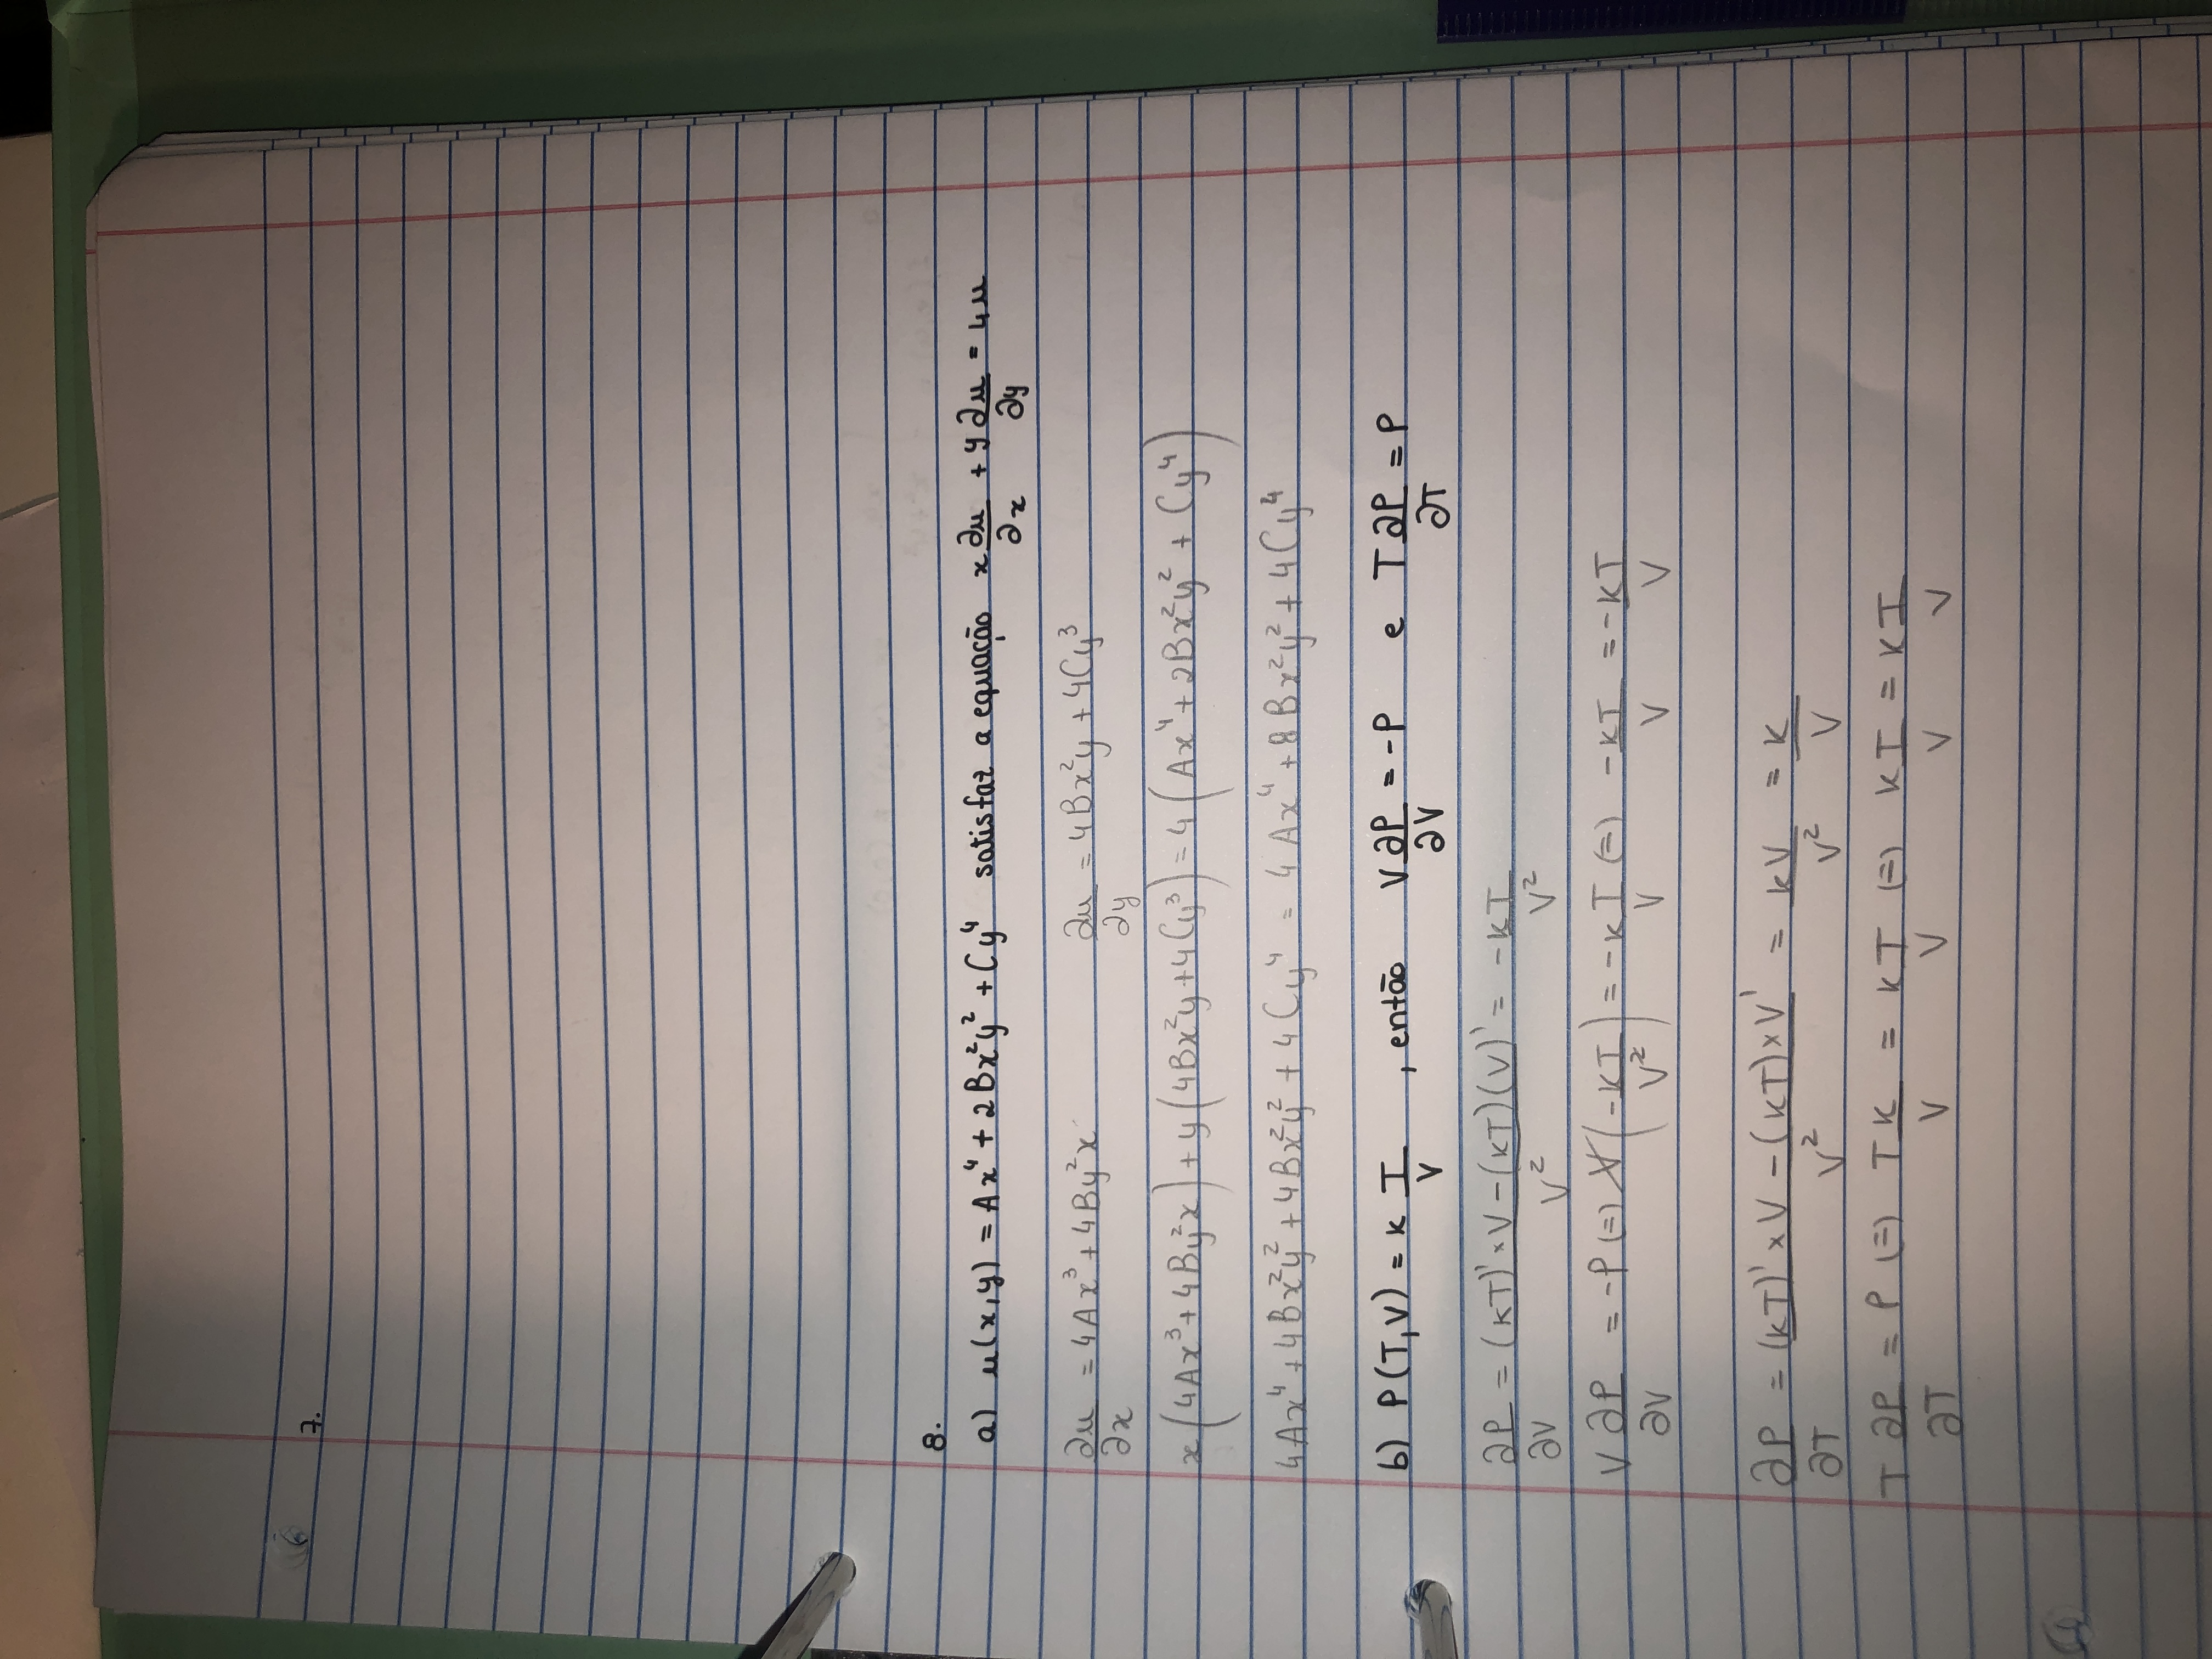 7.
8.
a) u(x,y) = Ax⁴ + 2Bx²y² + Cy⁴ satisfaz a equação x ∂u/∂x + y ∂u/∂y = 4u
∂u/∂x = 4Ax³ + 4By²x ∂u/∂y = 4Bx²y + 4Cy³
x(4Ax³ + 4By²x) + y(4Bx²y + 4Cy³) = 4(Ax⁴ + 2Bx²y² + Cy⁴)
4Ax⁴ + 4Bx²y² + 4Bx²y² + 4Cy⁴ = 4Ax⁴ + 8Bx²y² + 4Cy⁴
b) P(T,V) = k T/V , então V ∂P/∂V = -P e T ∂P/∂T = P
∂P/∂V = ((kT)' × V - (kT)(V)')/V² = -kT/V²
V ∂P/∂V = -P (=) V(-kT/V²) = -k T/V (=) -kT/V = -kT/V
∂P/∂T = ((kT)' × V - (kT) × V')/V² = kV/V² = k/V
T ∂P/∂T = P (=) T k/V = kT/V (=) kT/V = kT/V